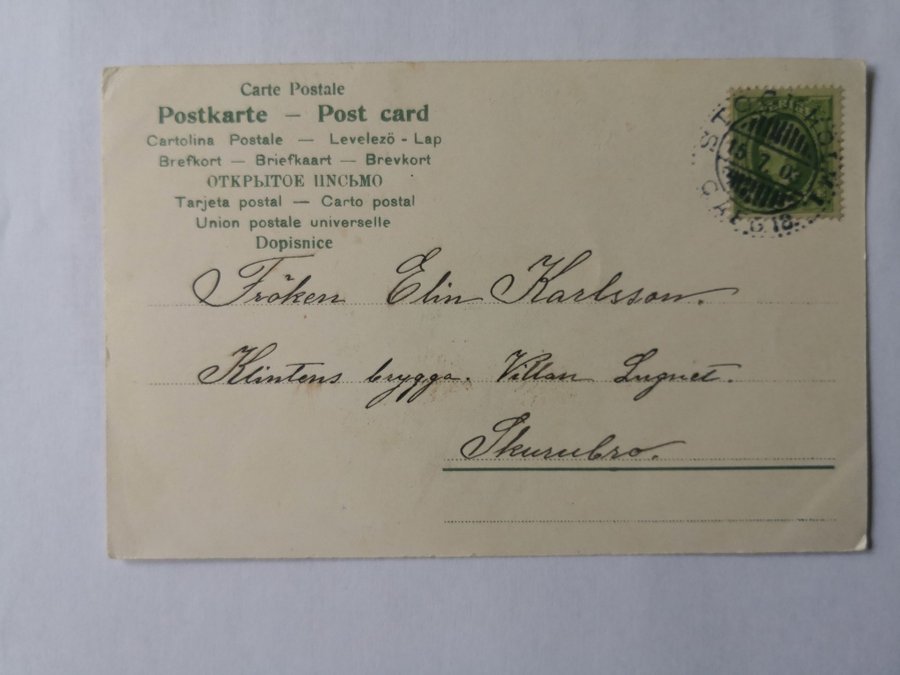 Carte Postale
Postkarte — Post card
Cartolina Postale — Levelező - Lap
Brefkort — Briefkaart — Brevkort
ОТКРЫТОЕ ПИСЬМО
Tarjeta postal — Carto postal
Union postale universelle
Dopisnice
STOCKHOLM
15 7 03
C A F G 18
Fröken Elin Karlsson.
Klintens brygga. Villan Lugnet.
Skurubro.